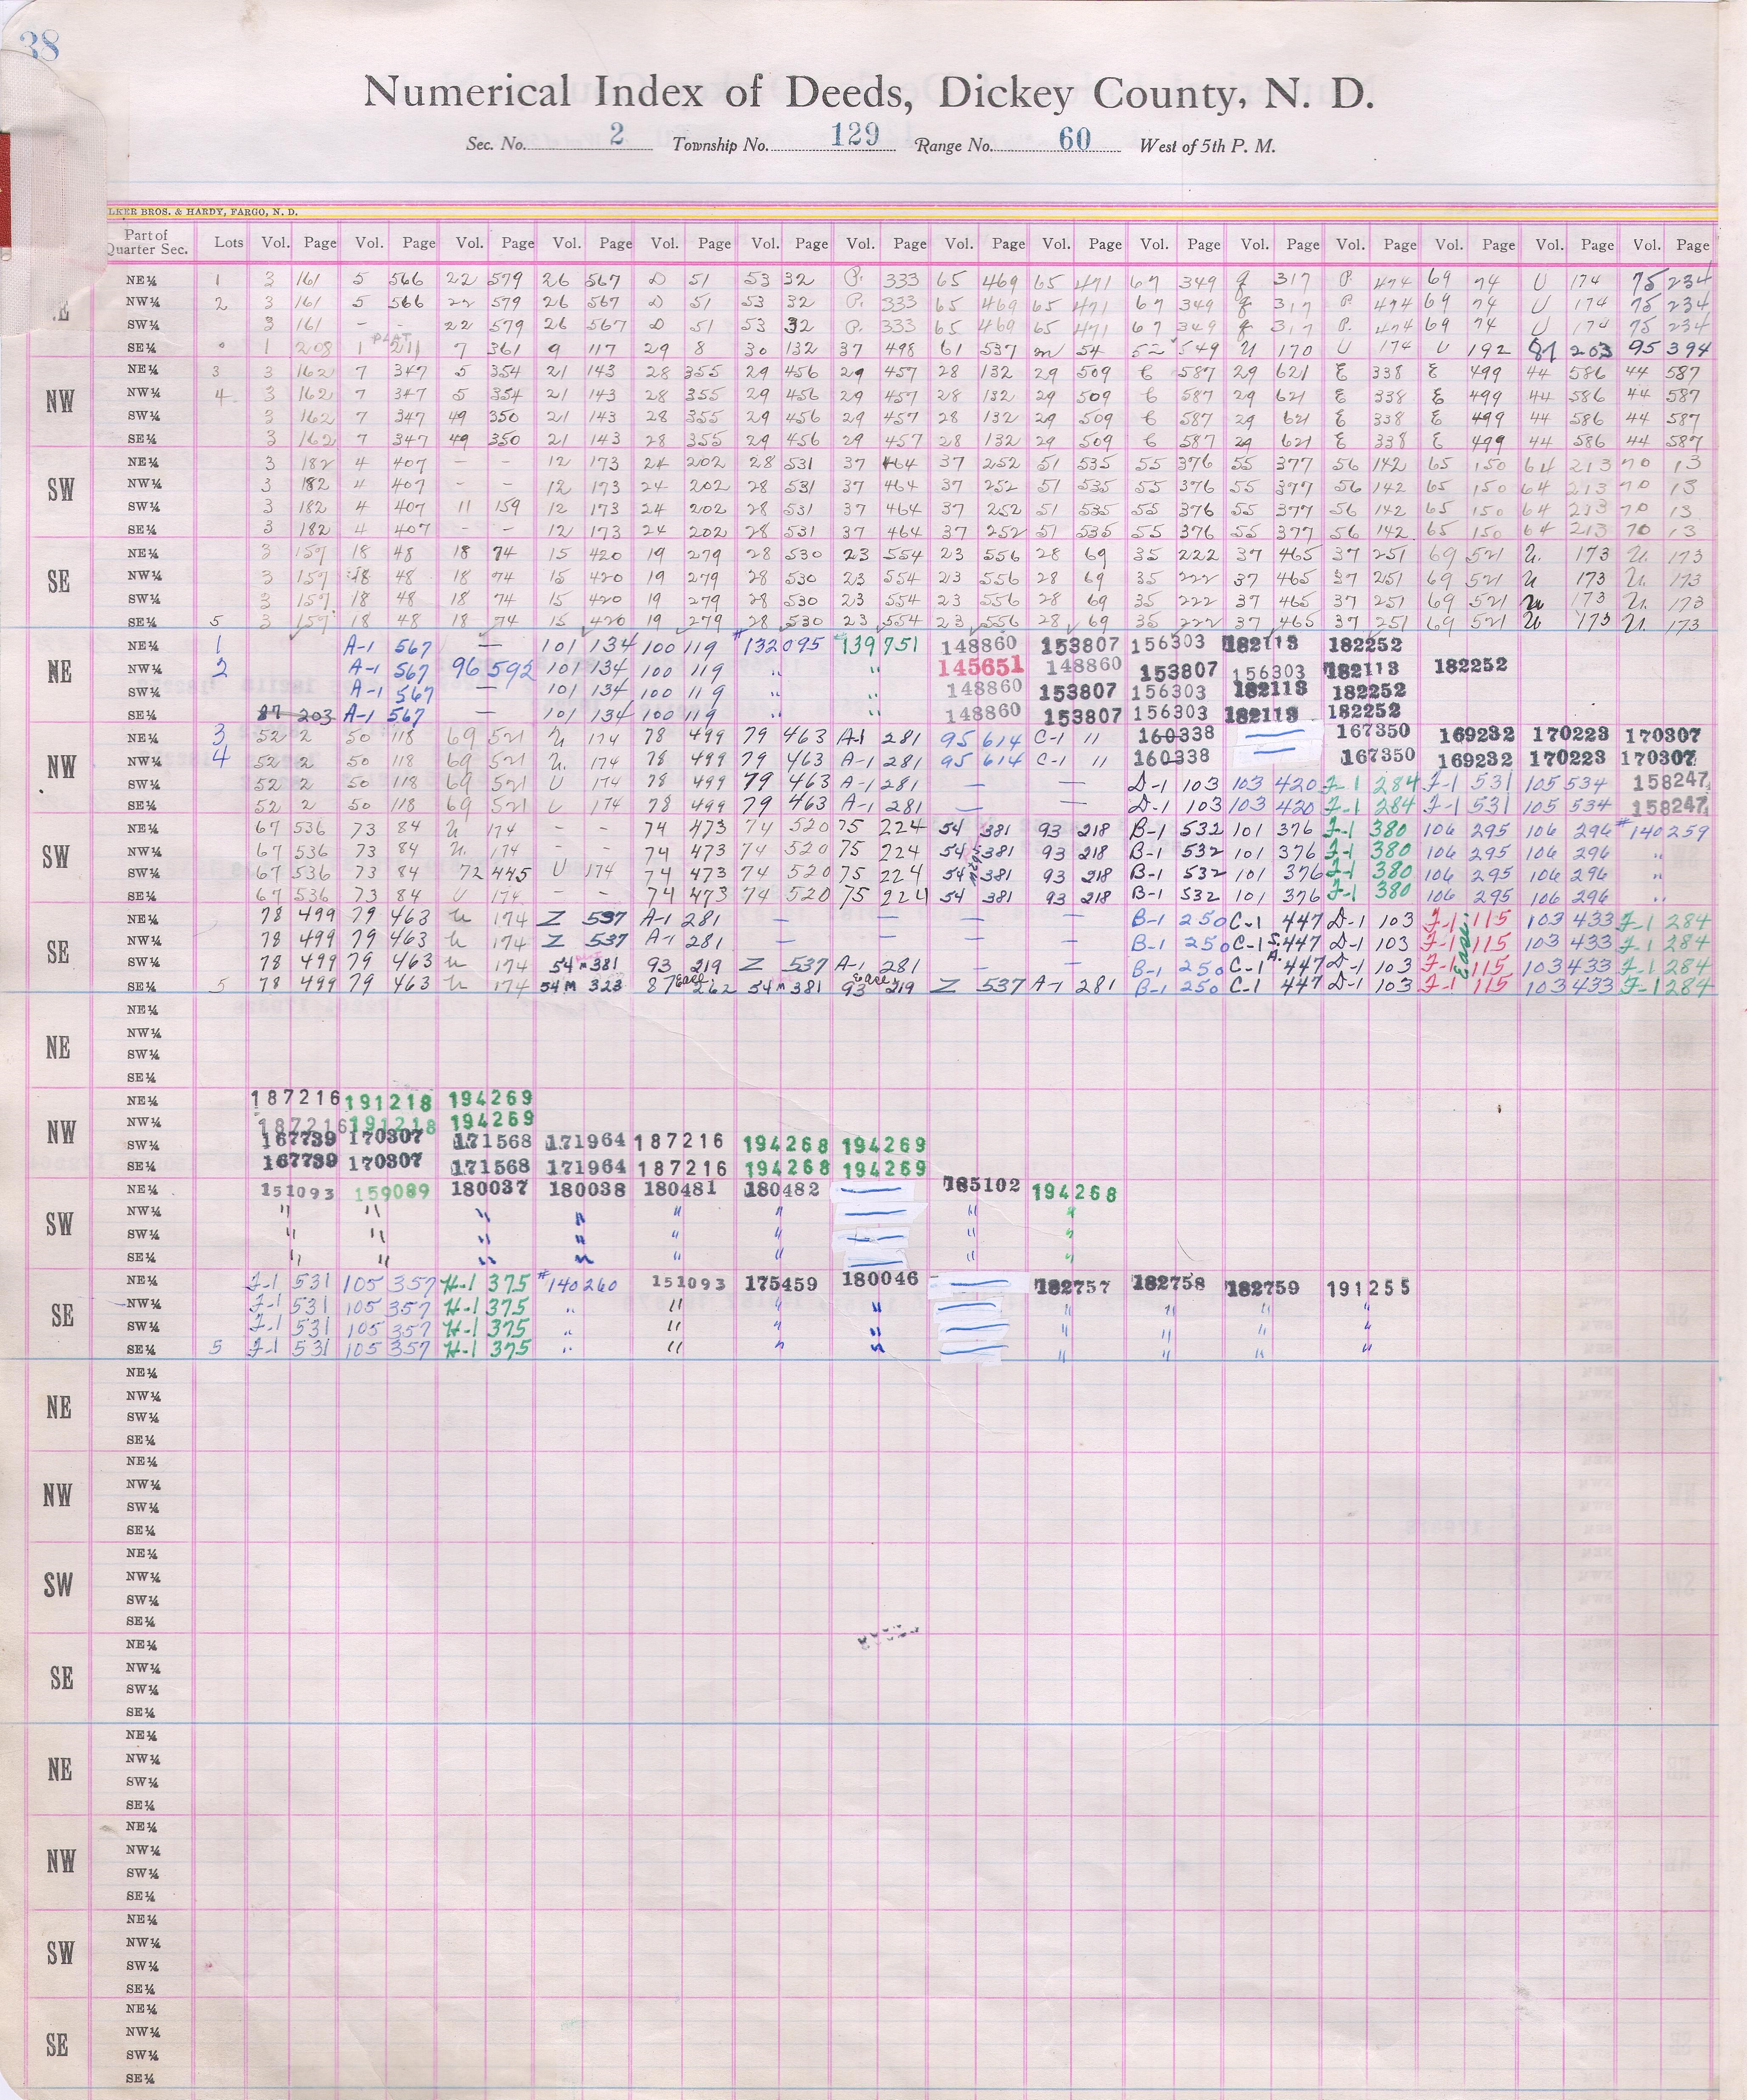 38
Numerical Index of Deeds, Dickey County, N. D.
Sec. No. 2 Township No. 129 Range No. 60 West of 5th P. M.
LKER BROS. & HARDY, FARGO, N. D.
Part of Quarter Sec. Lots Vol. Page Vol. Page Vol. Page Vol. Page Vol. Page Vol. Page Vol. Page Vol. Page Vol. Page Vol. Page Vol. Page Vol. Page Vol. Page Vol. Page Vol. Page
NE¼ 1 3 161 5 566 22 579 26 567 D 51 53 32 P. 333 65 469 65 471 67 349 g 317 P. 474 69 74 U 174 75 234
NW¼ 2 3 161 5 566 22 579 26 567 D 51 53 32 P. 333 65 469 65 471 67 349 g 317 P. 474 69 74 U 174 75 234
SW¼ 3 161 - - 22 579 26 567 D 51 53 32 P. 333 65 469 65 471 67 349 g 317 P. 474 69 74 U 174 75 234
SE¼ 1 208 1 PLAT 211 7 361 9 117 29 8 30 132 37 498 61 537 m 54 52 549 U 170 U 174 U 192 87 203 95 394
NW NE¼ 3 3 162 7 347 5 354 21 143 28 355 29 456 29 457 28 132 29 509 C 587 29 621 E 338 E 499 44 586 44 587
NW¼ 4 3 162 7 347 5 354 21 143 28 355 29 456 29 457 28 132 29 509 C 587 29 621 E 338 E 499 44 586 44 587
SW¼ 3 162 7 347 49 350 21 143 28 355 29 456 29 457 28 132 29 509 C 587 29 621 E 338 E 499 44 586 44 587
SE¼ 3 162 7 347 49 350 21 143 28 355 29 456 29 457 28 132 29 509 C 587 29 621 E 338 E 499 44 586 44 587
SW NE¼ 3 182 4 407 - - 12 173 24 202 28 531 37 464 37 252 51 535 55 376 55 377 56 142 65 150 64 213 70 13
NW¼ 3 182 4 407 - - 12 173 24 202 28 531 37 464 37 252 51 535 55 376 55 377 56 142 65 150 64 213 70 13
SW¼ 3 182 4 407 11 159 12 173 24 202 28 531 37 464 37 252 51 535 55 376 55 377 56 142 65 150 64 213 70 13
SE¼ 3 182 4 407 - - 12 173 24 202 28 531 37 464 37 252 51 535 55 376 55 377 56 142 65 150 64 213 70 13
SE NE¼ 3 157 18 48 18 74 15 420 19 279 28 530 23 554 23 556 28 69 35 222 37 465 37 251 69 521 U. 173 U. 173
NW¼ 3 157 18 48 18 74 15 420 19 279 28 530 23 554 23 556 28 69 35 222 37 465 37 251 69 521 U 173 U. 173
SW¼ 3 157 18 48 18 74 15 420 19 279 28 530 23 554 23 556 28 69 35 222 37 465 37 251 69 521 U 173 U. 173
SE¼ 5 3 157 18 48 18 74 15 420 19 279 28 530 23 554 23 556 28 69 35 222 37 465 37 251 69 521 U 173 U. 173
NE NE¼ 1 A-1 567 — 101 134 100 119 #132095 #139751 148860 153807 156303 182113 182252
NW¼ 2 A-1 567 96 592 101 134 100 119 " " 145651 148860 153807 156303 182113 182252
SW¼ A-1 567 — 101 134 100 119 " " 148860 153807 156303 182113 182252
SE¼ 87 203 A-1 567 — 101 134 100 119 " " 148860 153807 156303 182113 182252
NW NE¼ 3 52 2 50 118 69 521 U 174 78 499 79 463 A-1 281 95 614 C-1 11 160338 — 167350 169232 170223 170307
NW¼ 4 52 2 50 118 69 521 U. 174 78 499 79 463 A-1 281 95 614 C-1 11 160338 — 167350 169232 170223 170307
SW¼ 52 2 50 118 69 521 U 174 78 499 79 463 A-1 281 — — D-1 103 103 420 J-1 284 J-1 531 105 534 158247
SE¼ 52 2 50 118 69 521 U 174 78 499 79 463 A-1 281 — — D-1 103 103 420 J-1 284 J-1 531 105 534 158247
SW NE¼ 67 536 73 84 U 174 - - 74 473 74 520 75 224 54 381 93 218 B-1 532 101 376 J-1 380 106 295 106 296 #140259
NW¼ 67 536 73 84 U. 174 - - 74 473 74 520 75 224 54 381 93 218 B-1 532 101 376 J-1 380 106 295 106 296 "
SW¼ 67 536 73 84 72 445 U 174 74 473 74 520 75 224 54 381 93 218 B-1 532 101 376 J-1 380 106 295 106 296 "
SE¼ 67 536 73 84 U 174 - - 74 473 74 520 75 224 54 381 93 218 B-1 532 101 376 J-1 380 106 295 106 296 "
SE NE¼ 78 499 79 463 U 174 Z 537 A-1 281 — — — — B-1 250 C-1 447 D-1 103 J-1 115 103 433 J-1 284
NW¼ 78 499 79 463 U 174 Z 537 A-1 281 — — — — B-1 250 C-1 447 D-1 103 J-1 115 103 433 J-1 284
SW¼ 78 499 79 463 U 174 54 M 381 93 219 Z 537 A-1 281 — — B-1 250 C-1 447 D-1 103 J-1 115 103 433 J-1 284
SE¼ 5 78 499 79 463 U 174 54 M 323 87 Ease 262 54 M 381 93 Ease 219 Z 537 A-1 281 B-1 250 C-1 447 D-1 103 J-1 115 103 433 J-1 284
NE NE¼
NW¼
SW¼
SE¼
NW NE¼ 187216 191218 194269
NW¼ 187216 191218 194269
SW¼ 167739 170307 171568 171964 187216 194268 194269
SE¼ 167739 170307 171568 171964 187216 194268 194269
SW NE¼ 151093 159089 180037 180038 180481 180482 — 185102 194268
NW¼ " " " " " " — " "
SW¼ " " " " " " — " "
SE¼ " " " " " " — " "
SE NE¼ J-1 531 105 357 H-1 375 #140260 151093 175459 180046 — 182757 182758 182759 191255
NW¼ J-1 531 105 357 H-1 375 " " " " — " " " "
SW¼ J-1 531 105 357 H-1 375 " " " " — " " " "
SE¼ 5 J-1 531 105 357 H-1 375 " " " " — " " " "
NE NE¼
NW¼
SW¼
SE¼
NW NE¼
NW¼
SW¼
SE¼
SW NE¼
NW¼
SW¼
SE¼
SE NE¼
NW¼
SW¼
SE¼
NE NE¼
NW¼
SW¼
SE¼
NW NE¼
NW¼
SW¼
SE¼
SW NE¼
NW¼
SW¼
SE¼
SE NE¼
NW¼
SW¼
SE¼